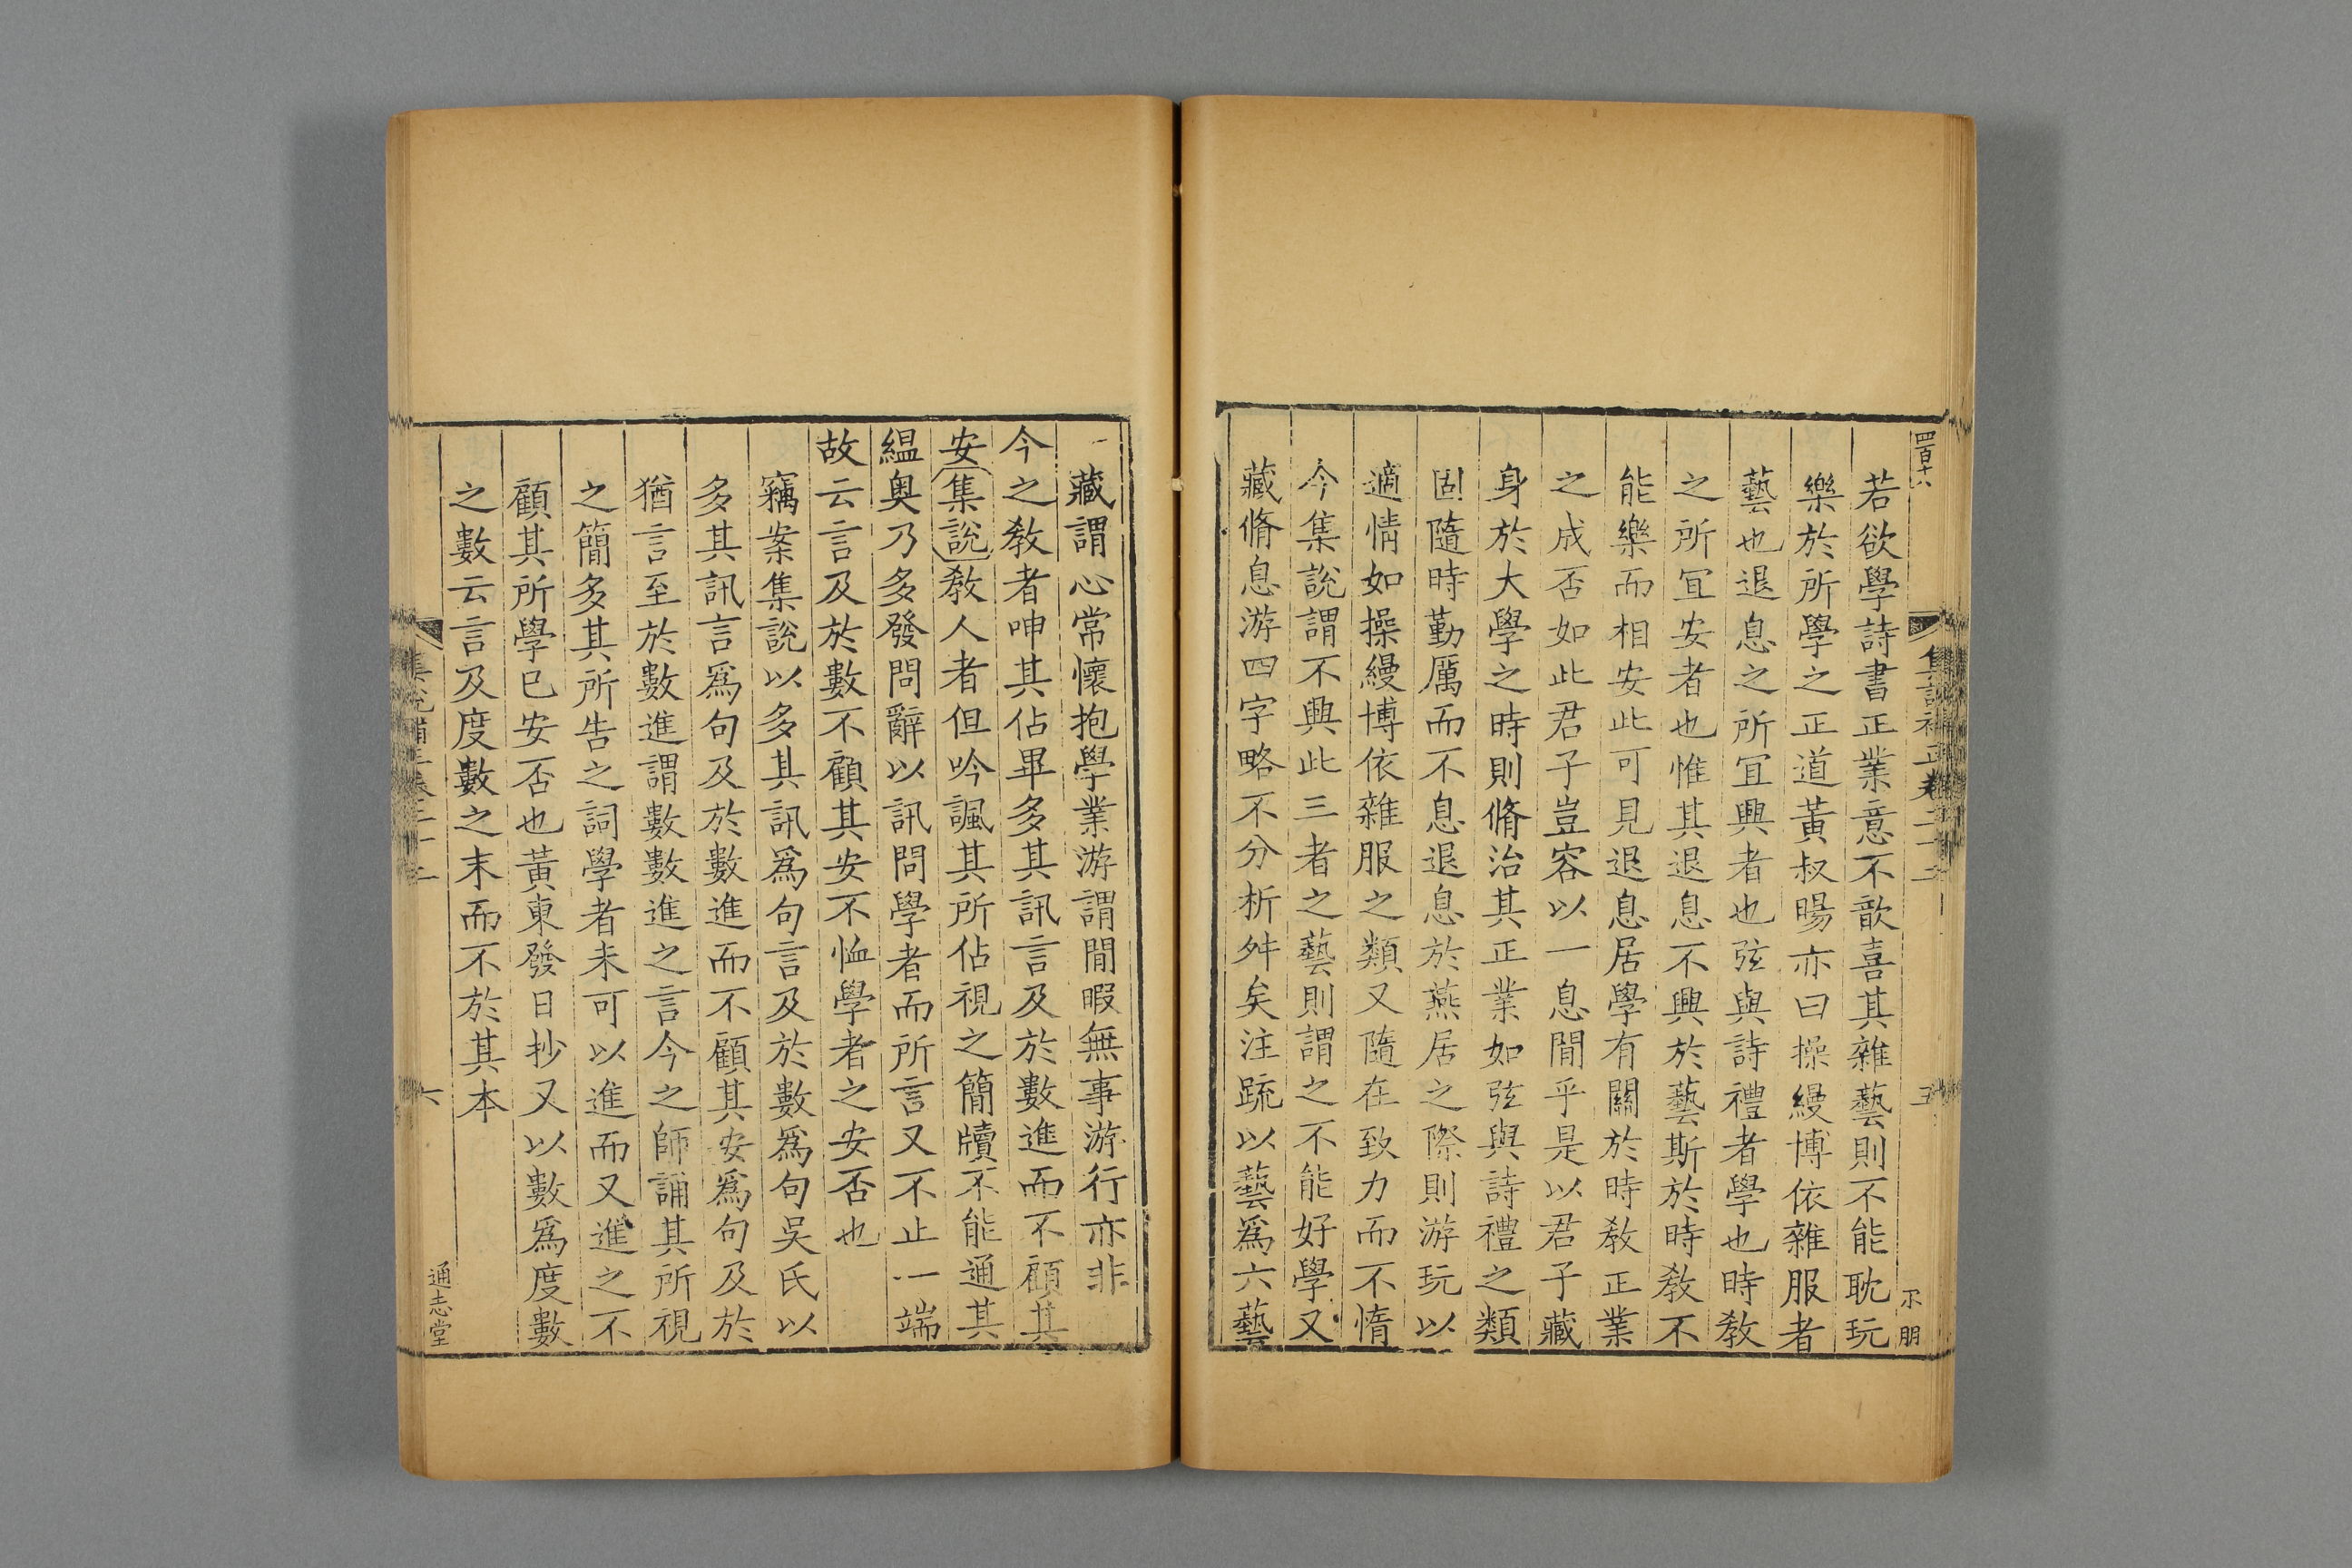 四百十八
集說補正卷二十二
五
不朋
若欲學詩書正業意不歆喜其雜藝則不能耽玩
樂於所學之正道黃叔暘亦曰操縵博依雜服者
藝也退息之所宜興者也弦與詩禮者學也時教
之所宜安者也惟其退息不興於藝斯於時教不
能樂而相安此可見退息居學有關於時教正業
之成否如此君子豈容以一息閒乎是以君子藏
身於大學之時則脩治其正業如弦與詩禮之類
固隨時勤厲而不息退息於燕居之際則游玩以
適情如操縵博依雜服之類又隨在致力而不惰
今集說謂不興此三者之藝則謂之不能好學又
藏脩息游四字略不分析舛矣注疏以藝爲六藝
藏謂心常懷抱學業游謂閒暇無事游行亦非
今之教者呻其佔畢多其訊言及於數進而不顧其
安集說教人者但吟諷其所佔視之簡牘不能通其
縕奧乃多發問辭以訊問學者而所言又不止一端
故云言及於數不顧其安不恤學者之安否也
竊案集說以多其訊爲句言及於數爲句吳氏以
多其訊言爲句及於數進而不顧其安爲句及於
猶言至於數進謂數數進之言今之師誦其所視
之簡多其所告之詞學者未可以進而又進之不
顧其所學已安否也黃東發日抄又以數爲度數
之數云言及度數之末而不於其本
集說補正卷二十二
六
通志堂